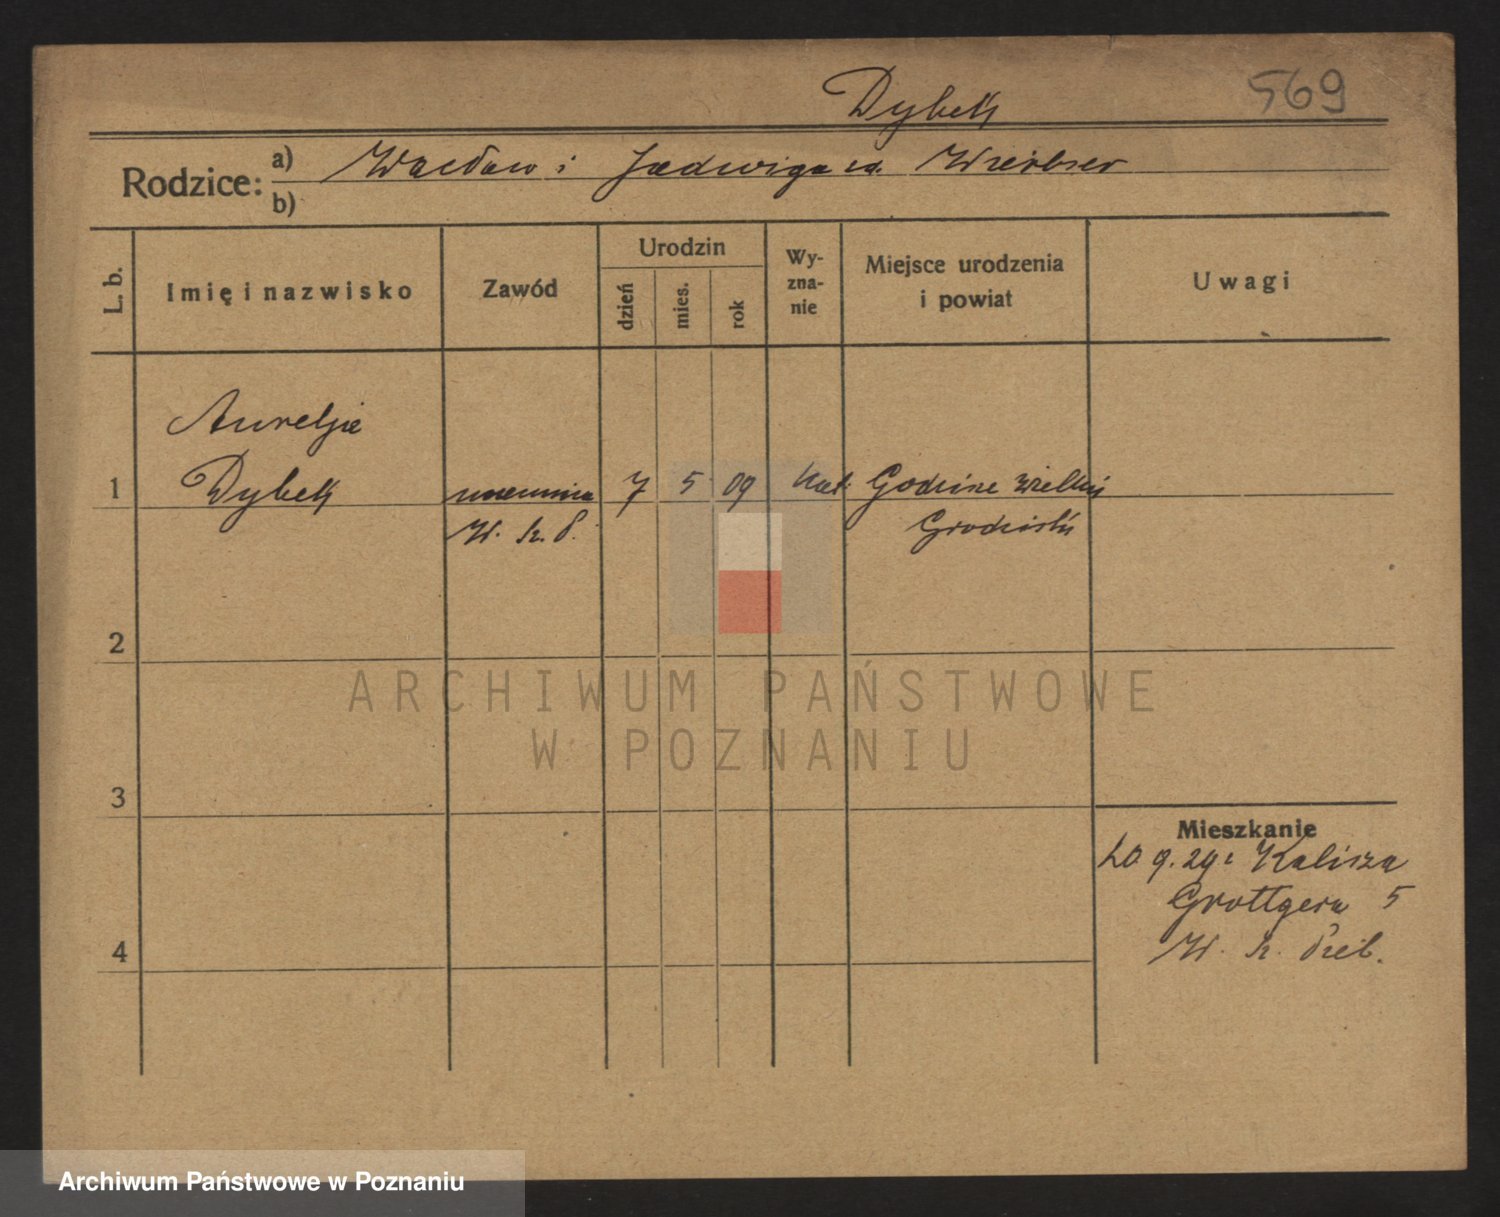 Dybek
569
Rodzice: a) Wacław i Jadwiga
b)
L. b.
Imię i nazwisko
Zawód
Urodzin
dzień
mies.
rok
Wy-
zna-
nie
Miejsce urodzenia
i powiat
Uwagi
Aurelja
1 Dybek 7 5 09 kat.
W.
2
ARCHIWUM PAŃSTWOWE
W POZNANIU
3
Mieszkanie
9. 29 z Kalisza
Grottgera 5
4
Archiwum Państwowe w Poznaniu